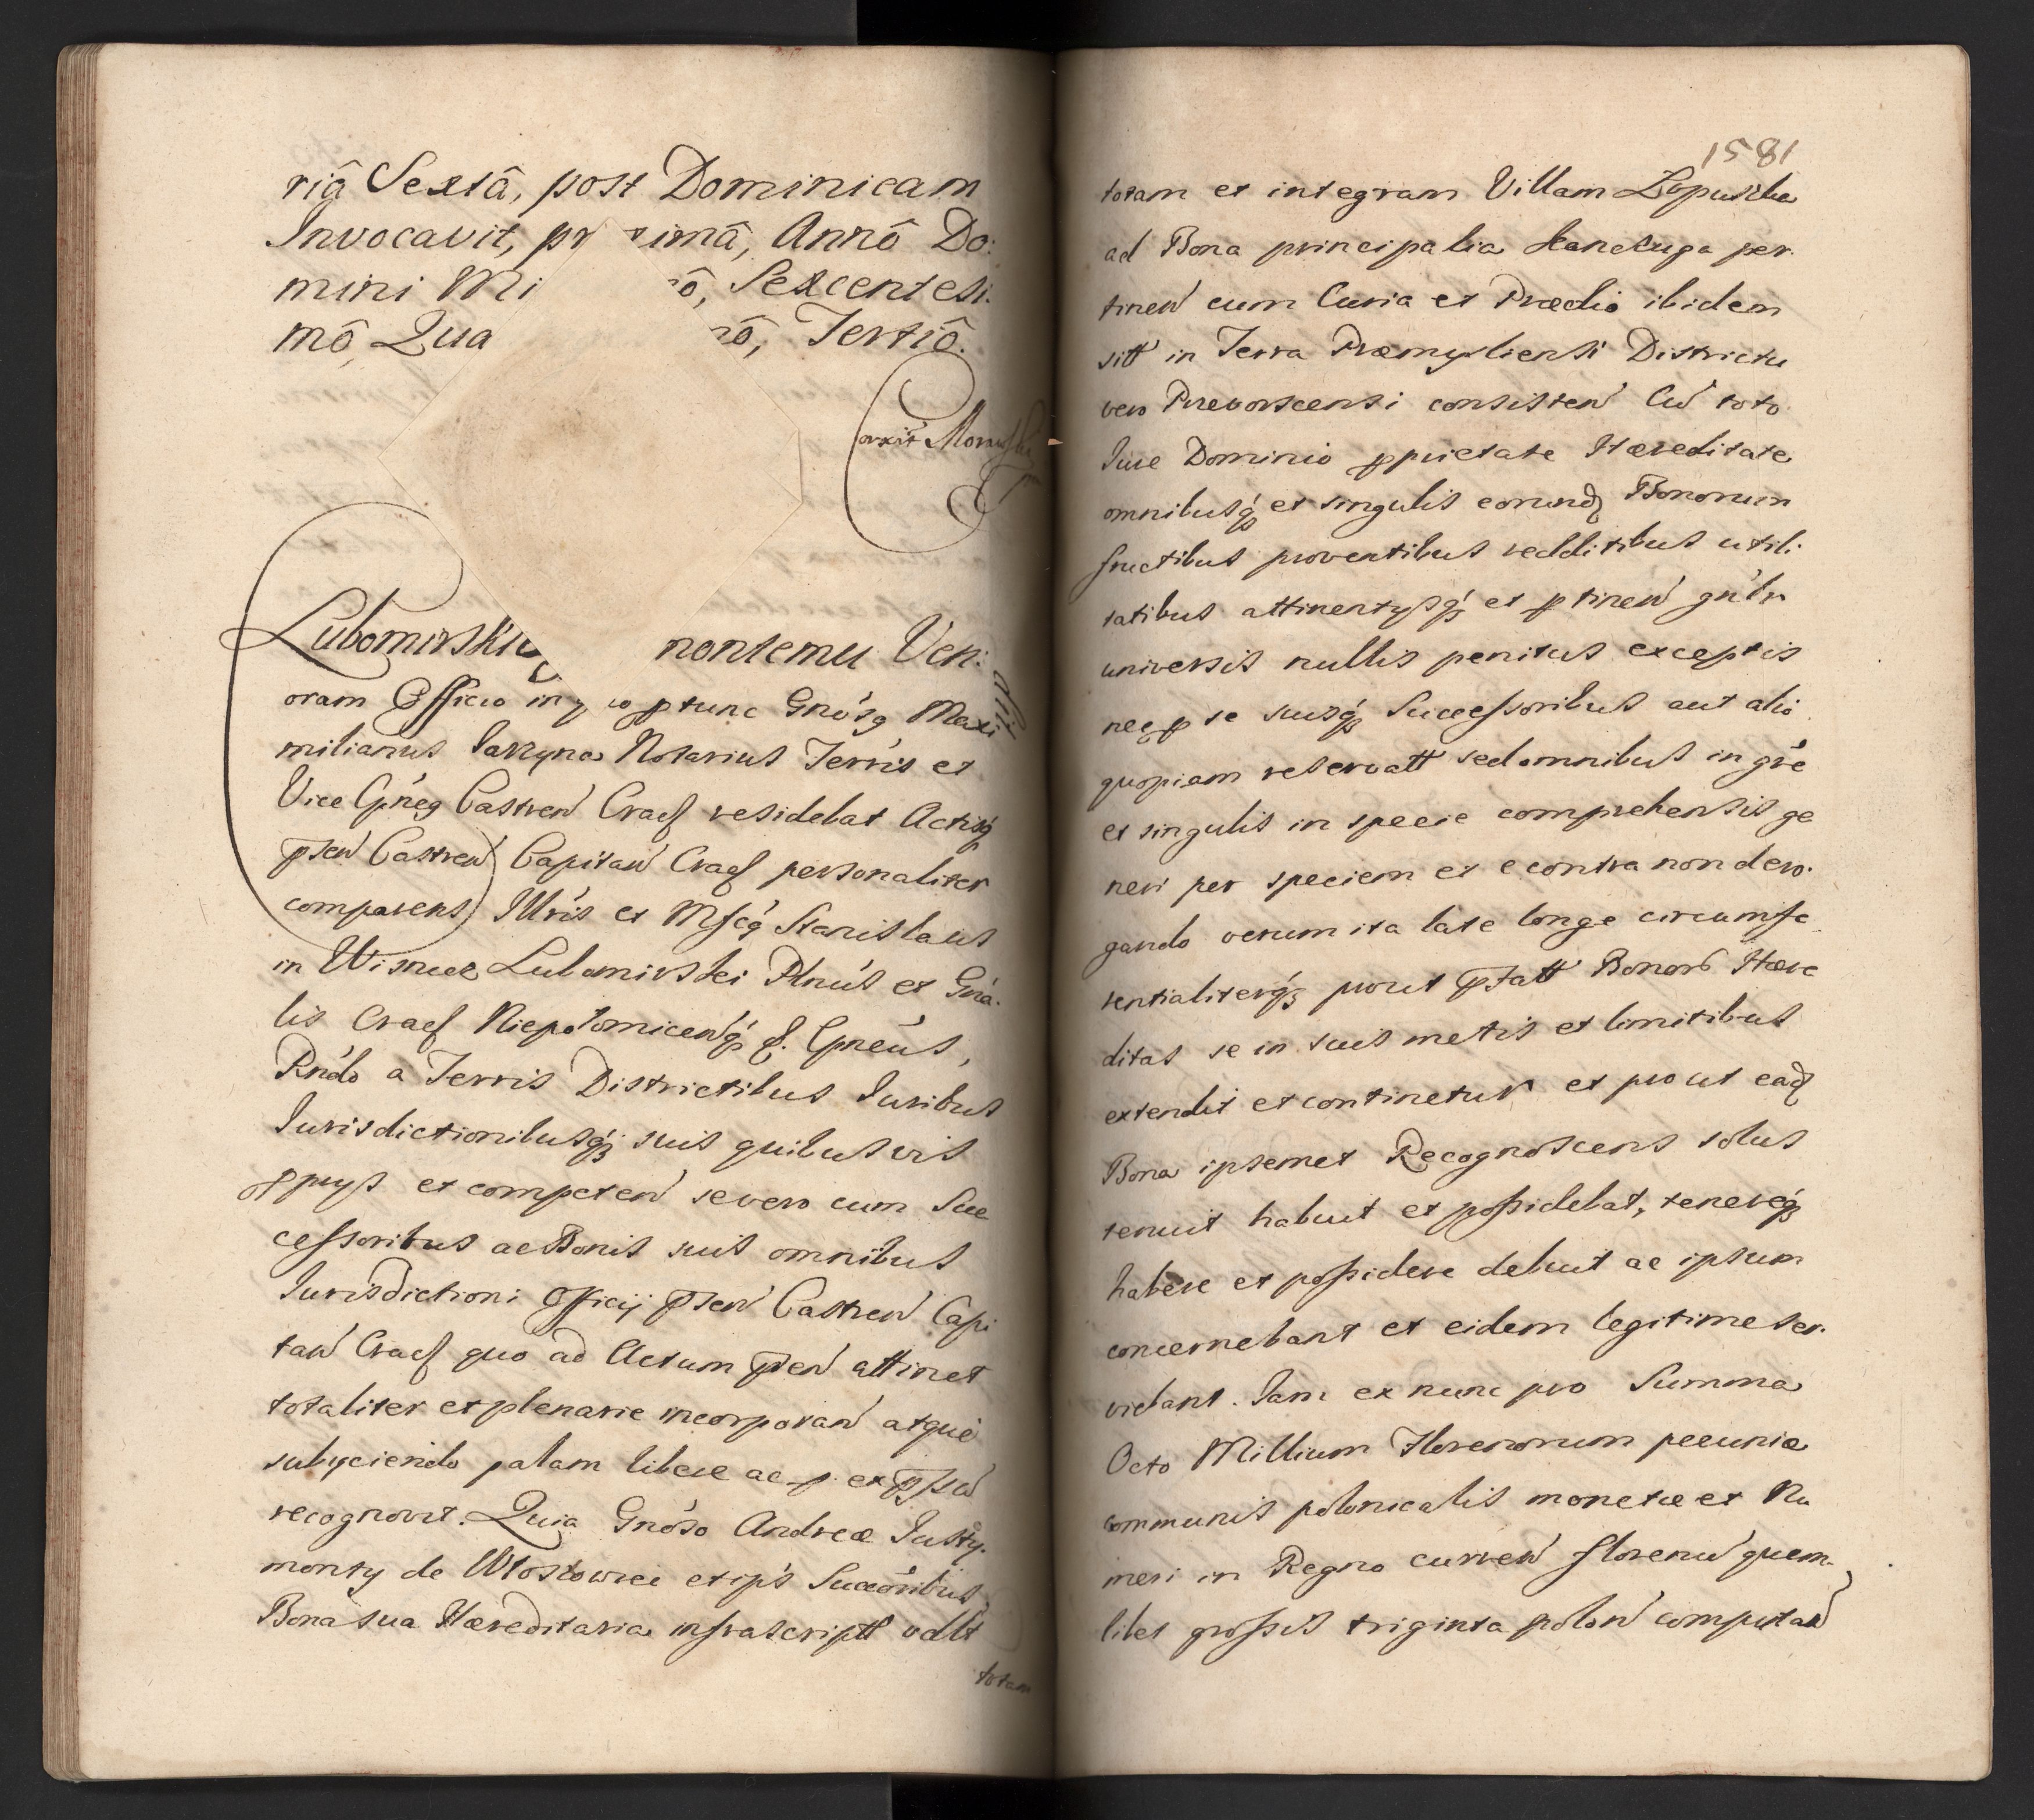 riâ Sextâ, post Dominicam
Invocavit, pr ximâ, Annô Do:
mini Mi ô, Sexcentesi:
mô, Qua nô, Tertiô.
Lubomirski nontemu Ven:
oram Officio in quo ptunc Gnósq Maxi
milianus Iarzyna Notarius Terŕis et
Vice Gńeq Castreń Cracꝭ residebat Actisq́
pseń Castreń Capitań Cracꝭ personaliter
comparens Illŕis et Mfcq́ Stanislaus
in Wisnicz Lubomirski Plnús et Gńa:
lis Cracꝭ Niepołomiceńq́ꝫ Gńeús,
Rńdo a Terris Districtibus Iuribus
Iurisdictionibusq́ꝫ suis quibusvis
pprys et competeń se vero cum Suc
cessoribus ac Bonis suis omnibus
Iurisdictioni Officij pseń Castreń Capi
tań Cracꝭ quo ad Actum pseń attinet
totaliter et plenarie incorporań atque
subyciendo palam libere ac p expssũ
recognovit. Quia Gnóso Andreæ Iusty.
monty de Włostowice et ip̃s Succóribus
Bona sua Hæreditaria infrascriptt vdlt
totam
1581
totam et integram Villam Lopuszka
ad Bona principalia Kanczuga per.
tineń cum Curia et Prædio ibidem
sitt in Terra Præmysliensi Districtu
vero Przevorscensi consisteń Cũ toto
Iure Dominio pprietate Hæreditate
omnibusq́ꝫ et singulis eorundꝫ Bonorum
fructibus proventibus redditibus utili:
tatibus attinentysq́ꝫ et ptineń gńlbr
universis nullis penitus exceptis
neq p se suisq́ꝫ Successoribus aut alio
quopiam reservatt sed omnibus in gńe
et singulis in specie comprehensis ge
neri per speciem et e contra non dero.
gando verum ita late longe circumfe
rentialiterq́ꝫ prout pfatt Bonorũ Hære
ditas se in suis metis et limitibus
extendit et continetur et prout eadꝫ
Bona ipsemet Recognoscens solus
tenuit habuit et possidebat, tenereq́ꝫ
habere et possidere debuit ac ipsum
concernebant et eidem legitime ser.
viebant. Iam ex nunc pro Summa
Octo Millium Florenorum pecuniæ
communis polonicalis monetæ et Nu
meri in Regno curreń florenũ quem.
libet grossis triginta poloń computań